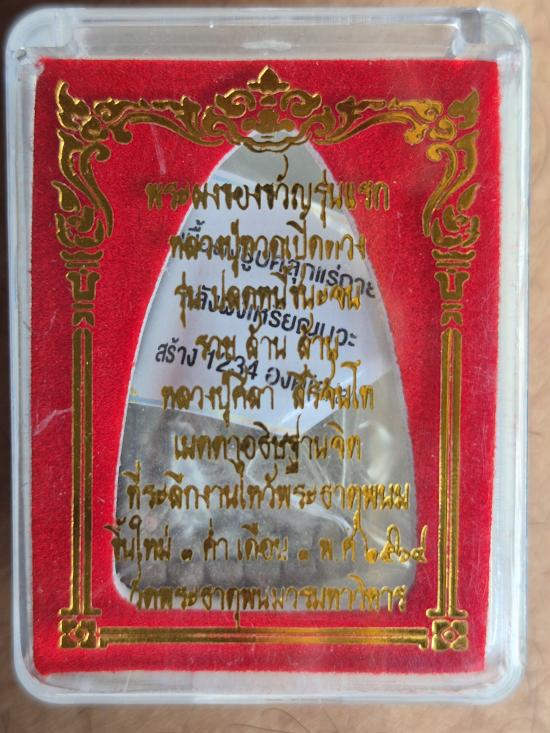 พระผงของขวัญรุ่นแรก
หลวงปู่ทวดเปิดดวง
รุ่น ปลดหนี้ ชนะจน
รวย ล้าน ล้าน
หลวงปู่ศิลา สิริจันโท
เมตตาอธิษฐานจิต
ที่ระลึกงานไหว้พระธาตุพนม
ขึ้นใหม่ ๓ ค่ำ เดือน ๓ พ.ศ ๒๕๖๔
วัดพระธาตุพนมวรมหาวิหาร
สร้าง 1234